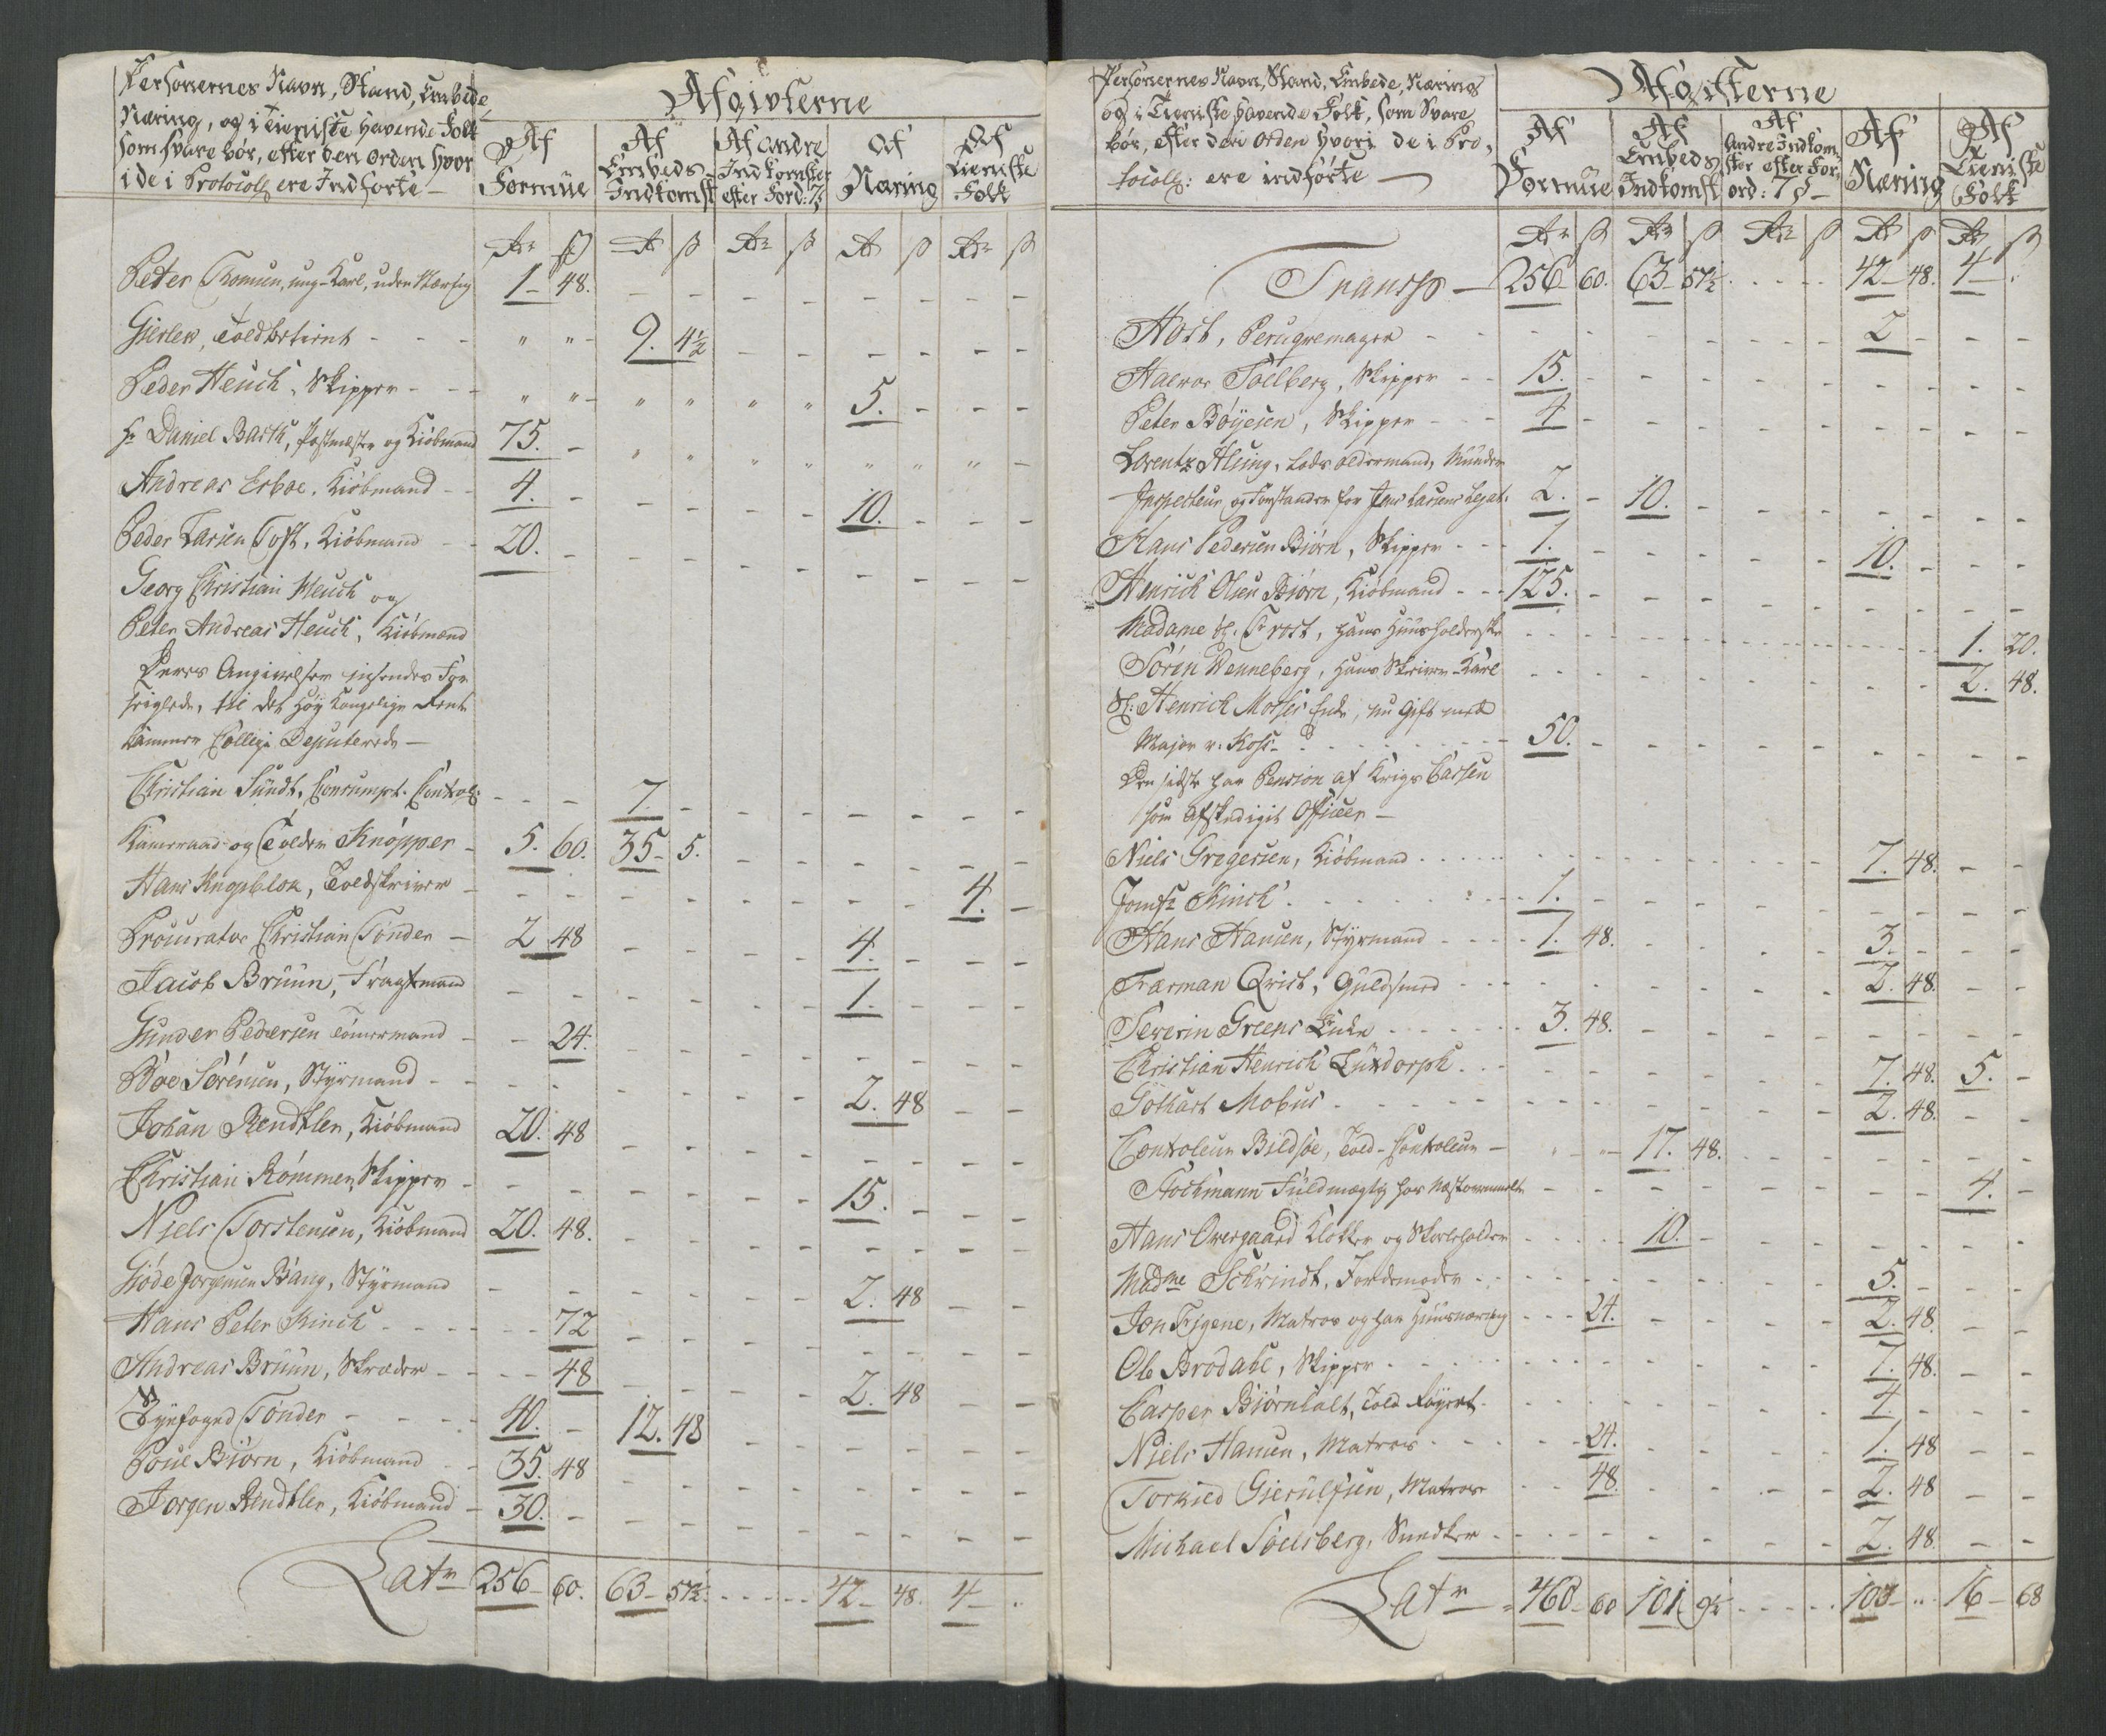 Personernes Navn, Stand, Embede,
Næring, og i Tieniste havende Folk
som svare bør, efter den Orden hvor
i de i Protocoll: ere Indførte —
Afgivterne
Af Formúe
Af Embeds Indkomst
Af andre Indkomster efter Ford: 7 §
Af Næring
Af Tieniste Folk
Rdr ß Rd ß Rdr ß Rd ß Rdr ß
Peter Thomsen, ung-Karl, uden Næring 1 - 48. - - - - - - - -
Giersew, Toldbetient - - - " " - 9. 4½ - - - - - -
Peder Heuch, Skipper - - - " " - " " " " 5. - - -
Hr Daniel Barth, Postmester og Kiöbmand 75. - " " " " " " " -
Andreas Erboe, Kiöbmand - - 4. - - - - - 10. - - -
Peder Larsen Toft, Kiöbmand - - 20. - - - - - - - - -
Georg Christian Heuch og
Peter Andreas Heuch, Kiöbmænd
Deres Angivelser indsendes For
seiglede, til det Høy Kongelige Rente
Kammer Collegii Deputerede —
Christian Sundt, Consumpt. Control: - - - 7. - - - - - - -
Kammeraad og Tolder Knopper - 5. 60. 35 - 5. - - - - - -
Hans Ungeblok, Toldskriver - - - - - - - - - 4. -
Procurator Christian Tønder - 2 48 - - - - 4. - - -
Jacob Bruun, Fragtmand - - - - - - 1. - - -
Gunder Pedersen Tömmermand - - 24. - - - - - - - -
Boe Sörensen, Styrmand - - - - - - - - 2. 48 - -
Johan Rendtler, Kiöbmand 20. 48 - - - - - - - -
Christian Römmer, Skipper - - - - - - - 15. - - -
Niels Torstensen, Kiöbmand 20. 48. - - - - - - - -
Giöde Jörgensen Bang, Styrmand - - - - - - 2. 48 - -
Hans Peter Kinch - - - - - - 72 - - - - - - - -
Andreas Bruun, Skræder - - - - 48 - - - - 2. 48 - -
Byefoged Tønder - - - - 40. - 12. 48 - - - - - -
Poul Biörn, Kiöbmand - - 35. 48 - - - - - - - -
Jörgen Rendtler, Kiöbmand - 30. - - - - - - - - -
Latr 256 - 60. 63 - 57½. - - - - - 42 - 48. 4 - .
Personernes Navn, Stand, Embede, Næring
og i Tieniste havende Folk, som Svare
bør, efter den Orden hvori de i Pro,,
tocoll: ere indførte —
Afgifterne
Af Formúe
Af Embeds Indkomst
Af Andre Indkom,, ster efter For,, ord: 7 § -
Af Næring
Af Tieniste Folk
Rdr ß Rdr ß Rdr ß Rd ß Rdr ß
Transp — 256 60. 63 - 57½. - - - - 42 - 48. 4 - .
Host, Peruqvemager - - - - - - - - 2 - - -
Halvor Solberg, Skipper - - 15. - - - - - - - - -
Peter Böyesen, Skipper - - - 4 - - - - - - - - -
Lorentz Alsing, Lods Oldermand, Munder
Inspecteur, og Forstander for Jens Lassens Legat. 2. - 10. - - - - - - -
Hans Pedersen Biörn, Skipper - - - 1. - - - - - 10. - - -
Henrich Olsen Biörn, Kiöbmand - - 125. - - - - - - - - -
Madame Sl. Trost, hans Huusholderske - - - - - - - - - 1. 20.
Sören Wenneberg, hans Skriver-Karl - - - - - - - - 2. 48.
Sl: Henrich Moßes Enke, nu Gift med
Major v: Koss - - - - - - - 50. - - - - - - - - -
Den sidste har Pension af Krigs Cassen
som Afskediget Officeer —
Niels Gregersen, Kiöbmand - - - - - - - - 7. 48. - -
Jomfr Kinch - - - - - - - - 1. - - - - - - - - -
Hans Hansen, Styrmand - - - - 1. 48. - - - - 3. - - -
Farman Qvist, Guldsmed - - - - - - - - - 2. 48. - -
Severin Greens Enke - - - - - - 3. 48. - - - - - - - -
Christian Henrich Luxdorph - - - - - - - - 7. 48. 5. -
Gothart Mobus - - - - - - - - - - 2. 48. - -
Controleur Bildsöe, Told-Controleur - - - 17. 48. - - - - - -
Stochmann Fuldmægtig hos Næstommelte - - - - - - - - 4. -
Hans Overgaard Klokker og Skoleholder - - - 10. - - - - - - -
Madme Schrindt, Jordemoder - - - - - - - - 5. - - -
Jon Tygene, Matros og har Huusnæring - - - 24. - - - - 2. 48. - -
Ole Brodahl, Skipper - - - - - - - - - 7. 48. - -
Casper Biörnholt, Told Röyert - - - - - - - - 4. - - -
Niels Hansen, Matros - - - - - - 24. - - - - 1. 48 - -
Torkied Gierulfsen, Matros - - - 48. - - - - 2. 48 - -
Michael Soelsberg, Snedker - - - - - - - - - 2. 48. - -
Latr - 460 - 60 101 9½ - - - - 103 - .. 16 - 68